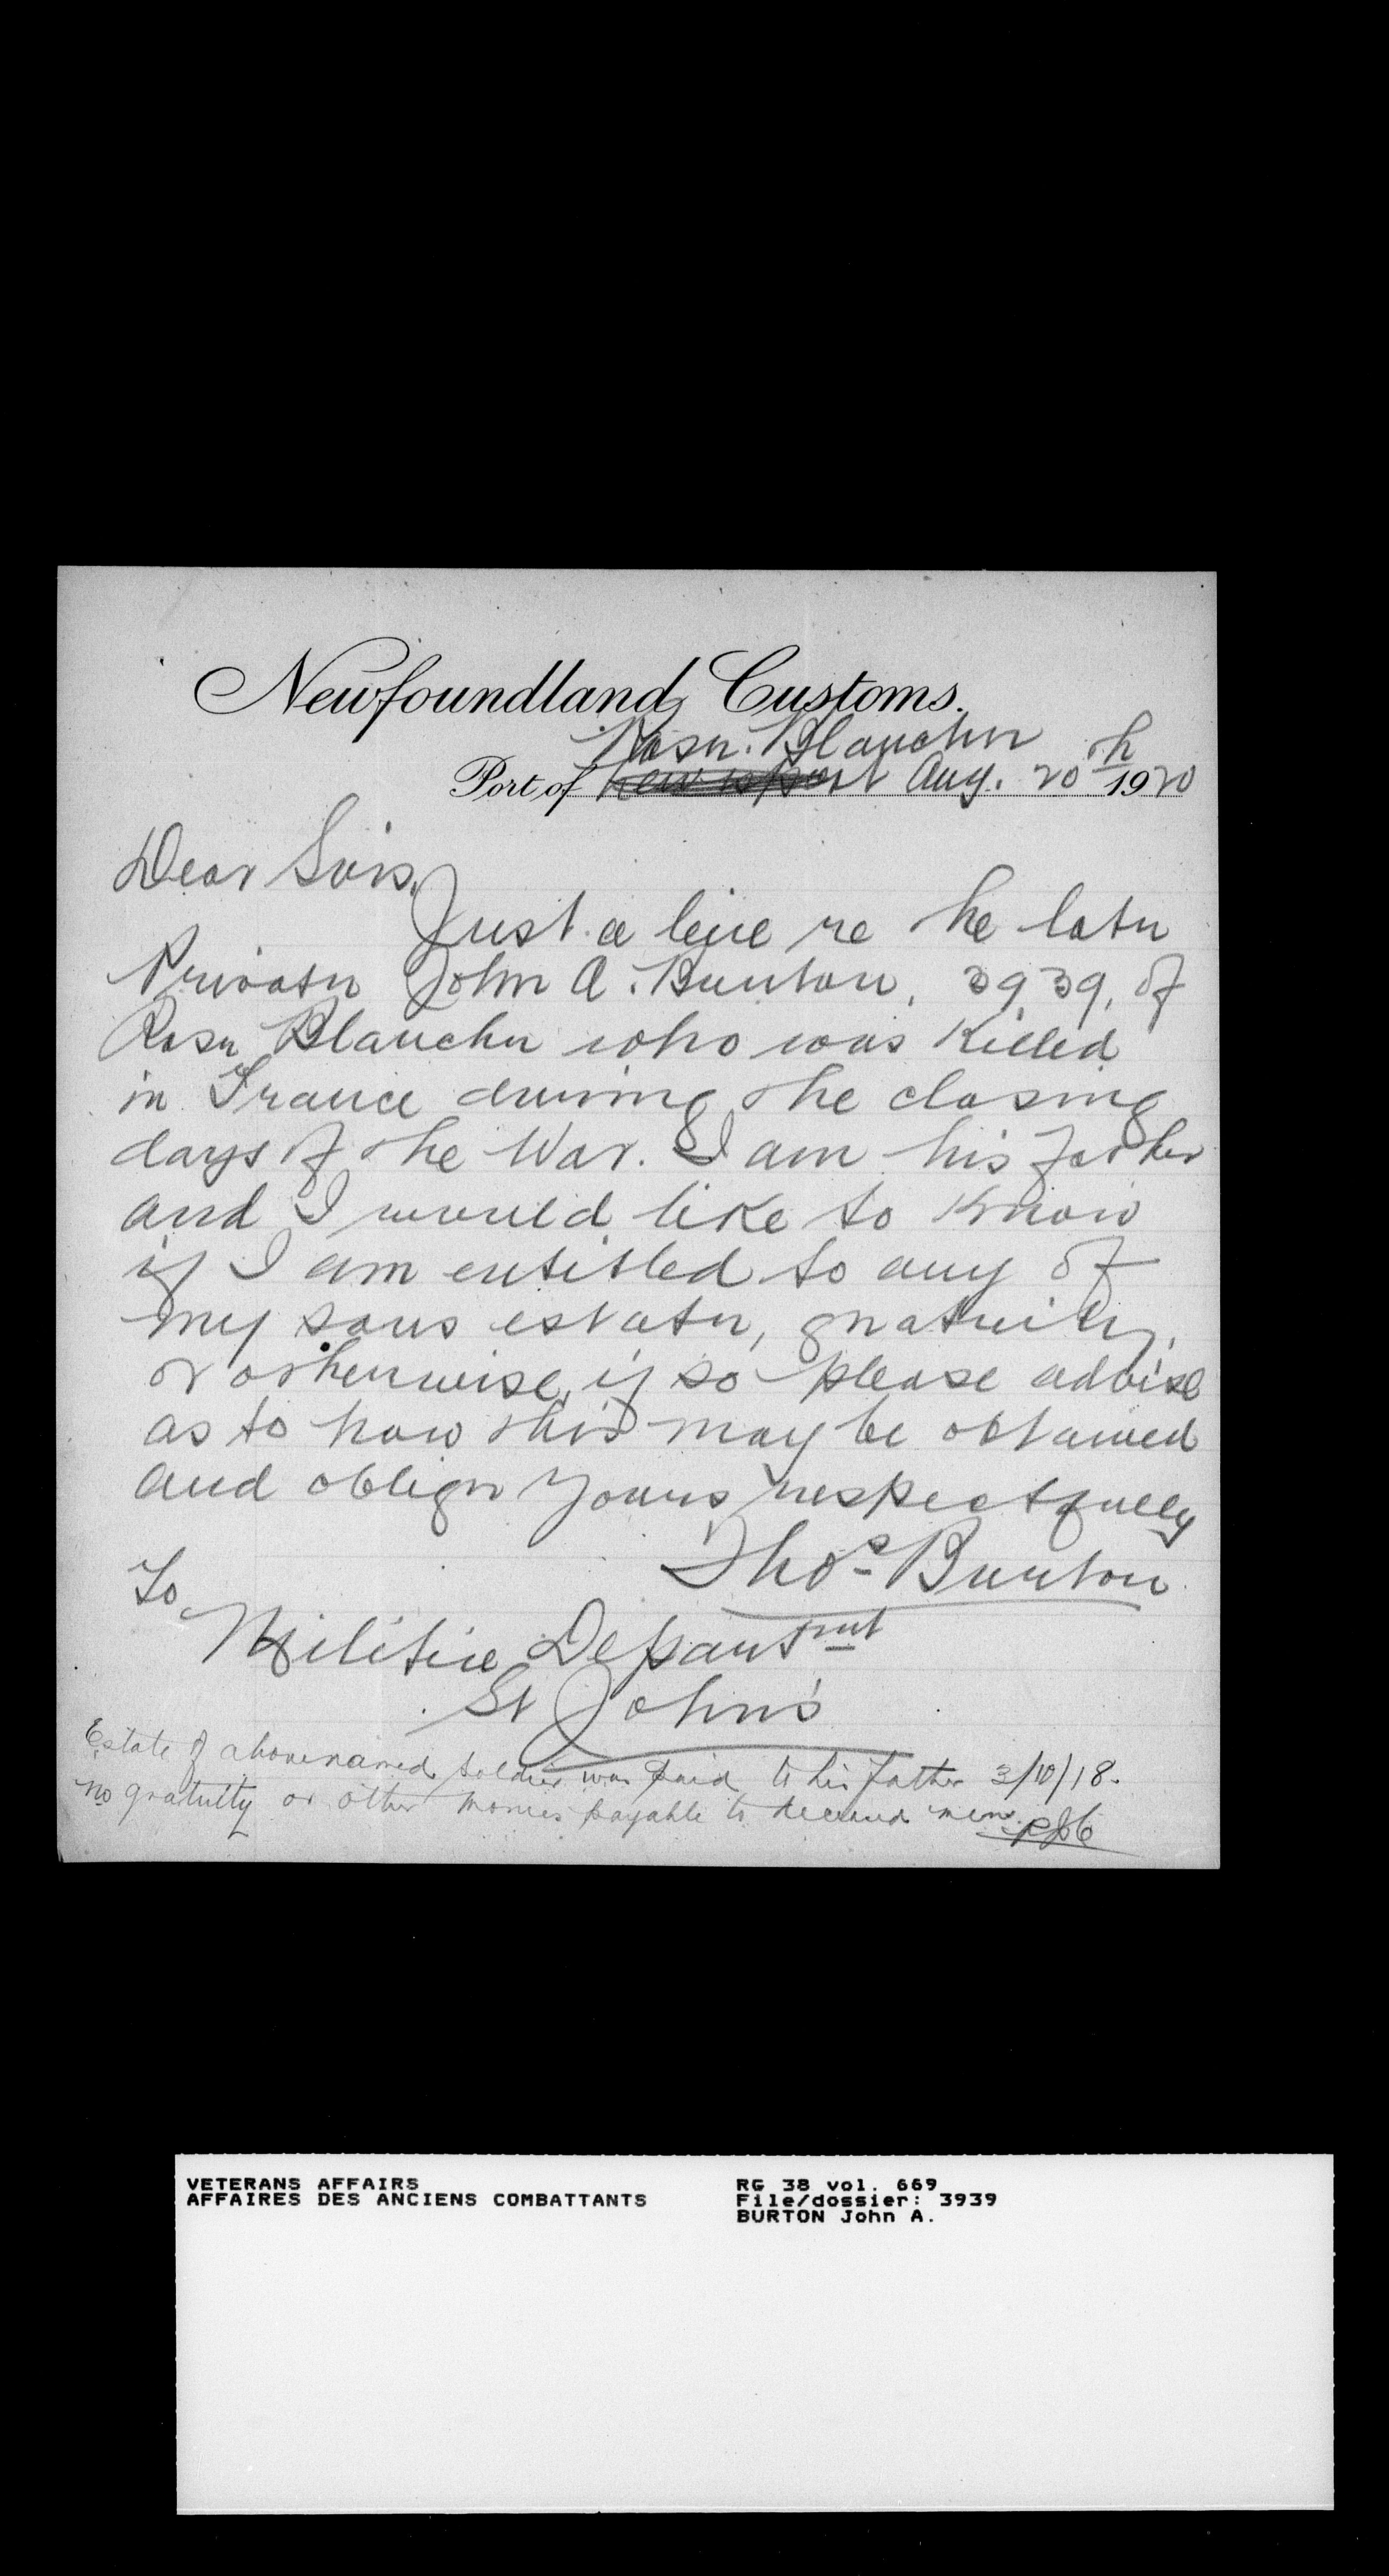 Newfoundland Customs.
Rose Blanche
Port of Aug. 20th 1920
Dear Sirs,
Just a line re the late
Private John A. Burton, 3939, of
Rose Blanche who was killed
in France during the closing
days of the War. I am his father
and I would like to know
if I am entitled to any of
my sons estate, gratuity,
or otherwise, if so please advise
as to how this may be obtained
and oblige Yours respectfully
Thos Burton
To
Militia Departmnt
St John's
Estate of abovenamed soldier was paid to his father 3/10/18.
no gratuity or other monies payable to deceased men.
VETERANS AFFAIRS
AFFAIRES DES ANCIENS COMBATTANTS
RG 38 vol. 669
File/dossier: 3939
BURTON John A.